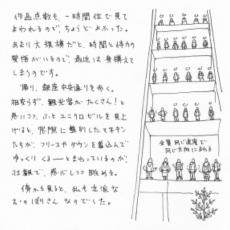 作品点数も、一時間位で見て
まわれるので、ちょうどよかった。
あまり大規模だと、時間も体力の
覚悟がいるので、最近は身構えて
しまうのです。
帰り、銀座中央通りを歩く。
相変らず、観光客がたくさん！と
思いつつ、ふとユニクロビルを見上
げると、窓際に整列したマネキン
たちが、フリースやダウンを着込んで
ゆっくりくるーーとまわっているのが、
壮観で、思わずしっと眺める。
傍から見ると、私も立派な
おのぼりさんなのでした。
全員同じ速度で
同じ方向にまわる